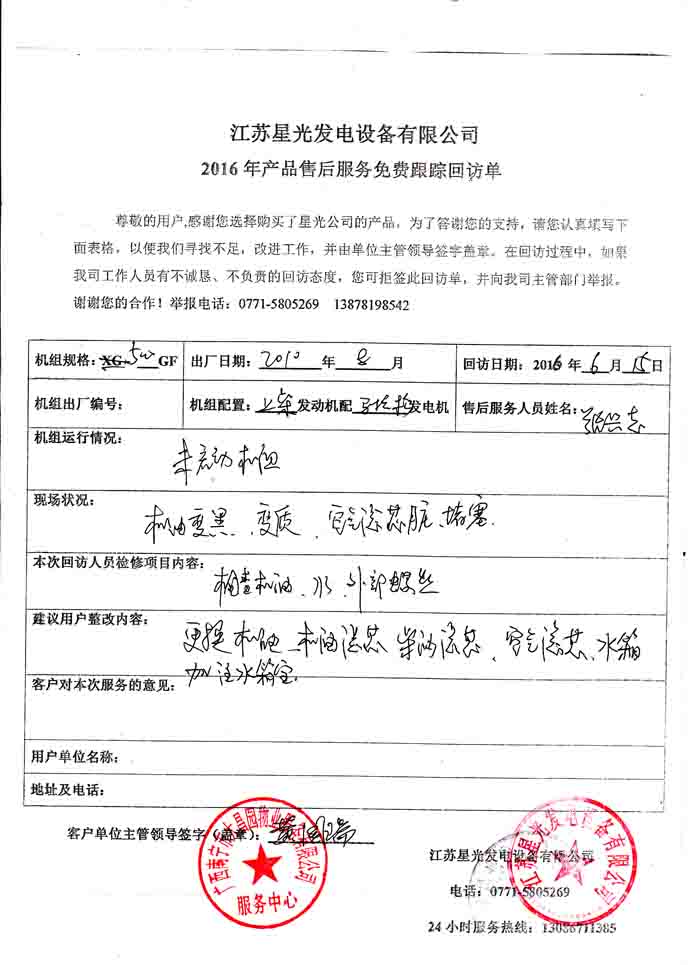 江苏星光发电设备有限公司
2016 年产品售后服务免费跟踪回访单
尊敬的用户,感谢您选择购买了星光公司的产品，为了答谢您的支持，请您认真填写下
面表格，以便我们寻找不足，改进工作，并由单位主管领导签字盖章。在回访过程中，如果
我司工作人员有不诚恳、不负责的回访态度，您可拒签此回访单，并向我司主管部门举报。
谢谢您的合作！举报电话：0771-5805269 13878198542
机组规格：XG-50 GF 出厂日期：2010 年 8 月 回访日期：2016 年 6 月 15 日
机组出厂编号： 机组配置：上柴 发动机配 发电机 售后服务人员姓名：张兴志
机组运行情况：
未启动机组
现场状况：
机油变黑、变质、空气滤芯脏、堵塞.
本次回访人员检修项目内容：
检查机油、水、外部螺丝
建议用户整改内容：
更换机油、机油滤芯 柴油滤芯、空气滤芯、水箱
加注水箱宝.
客户对本次服务的意见：
用户单位名称：
地址及电话：
客户单位主管领导签字（盖章）：
服务中心
江苏星光发电设备有限公司
江苏星光发电设备有限公司
电话：0771-5805269
24 小时服务热线：13086711385